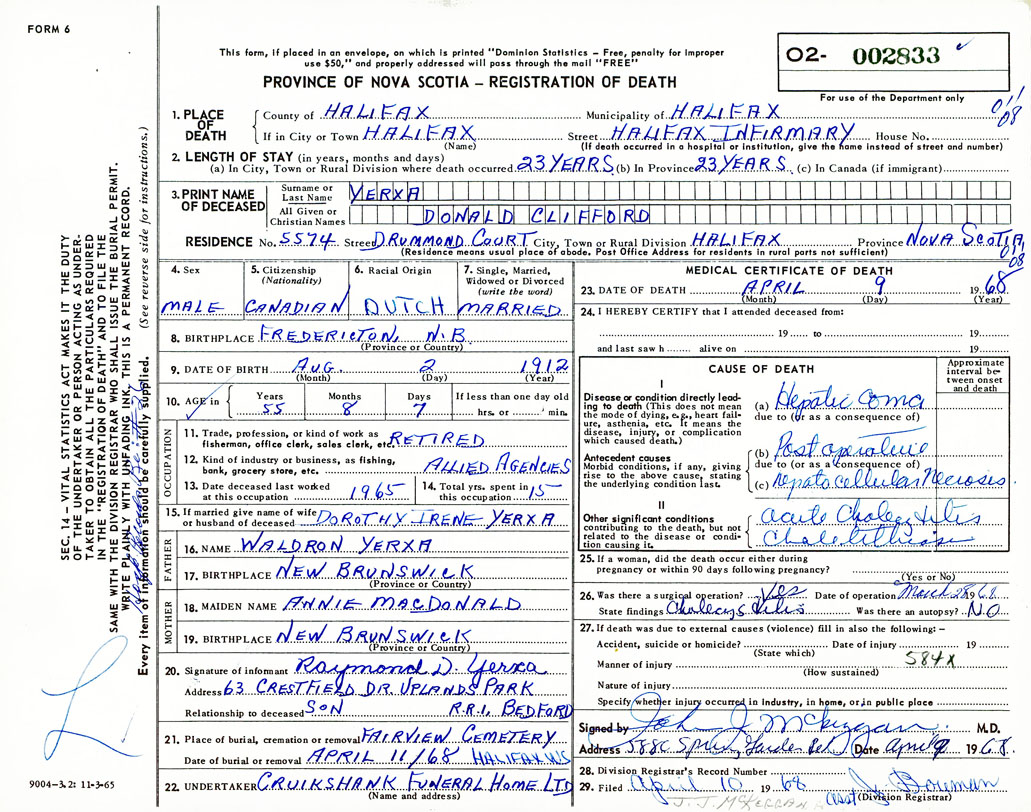 FORM 6
This form, if placed in an envelope, on which is printed "Dominion Statistics – Free, penalty for improper
use $50," and properly addressed will pass through the mail "FREE"
PROVINCE OF NOVA SCOTIA – REGISTRATION OF DEATH
02- 002833
For use of the Department only
1. PLACE OF DEATH
County of HALIFAX Municipality of HALIFAX
If in City or Town HALIFAX Street HALIFAX INFIRMARY House No.
(Name) (If death occurred in a hospital or institution, give the name instead of street and number)
2. LENGTH OF STAY (in years, months and days)
(a) In City, Town or Rural Division where death occurred 23 YEARS (b) In Province 23 YEARS (c) In Canada (if immigrant)
3. PRINT NAME OF DECEASED
Surname or Last Name YERXA
All Given or Christian Names DONALD CLIFFORD
RESIDENCE No. 5574 Street DRUMMOND COURT City, Town or Rural Division HALIFAX Province NOVA SCOTIA
(Residence means usual place of abode. Post Office Address for residents in rural parts not sufficient)
08
4. Sex MALE
5. Citizenship (Nationality) CANADIAN
6. Racial Origin DUTCH
7. Single, Married, Widowed or Divorced (write the word) MARRIED
8. BIRTHPLACE FREDERICTON, N.B.
(Province or Country)
9. DATE OF BIRTH AUG. 2 1912
(Month) (Day) (Year)
10. AGE in Years 55 Months 8 Days 7 If less than one day old hrs. or min.
OCCUPATION
11. Trade, profession, or kind of work as fisherman, office clerk, sales clerk, etc. RETIRED
12. Kind of industry or business, as fishing, bank, grocery store, etc. ALLIED AGENCIES
13. Date deceased last worked at this occupation 1965
14. Total yrs. spent in this occupation 15
15. If married give name of wife or husband of deceased DOROTHY IRENE YERXA
FATHER
16. NAME WALDRON YERXA
17. BIRTHPLACE NEW BRUNSWICK
(Province or Country)
MOTHER
18. MAIDEN NAME ANNIE MACDONALD
19. BIRTHPLACE NEW BRUNSWICK
(Province or Country)
20. Signature of informant Raymond D. Yerxa
Address 63 CRESTFIELD DR. UPLANDS PARK
Relationship to deceased SON R.R.1, BEDFORD
21. Place of burial, cremation or removal FAIRVIEW CEMETERY
Date of burial or removal APRIL 11/68 HALIFAX NS
22. UNDERTAKER CRUIKSHANK FUNERAL HOME LTD
(Name and address)
MEDICAL CERTIFICATE OF DEATH
23. DATE OF DEATH APRIL 9 1968
(Month) (Day) (Year)
24. I HEREBY CERTIFY that I attended deceased from:
19 to 19
and last saw h alive on 19
CAUSE OF DEATH
Approximate interval between onset and death
I
Disease or condition directly leading to death (This does not mean the mode of dying, e.g., heart failure, asthenia, etc. It means the disease, injury, or complication which caused death.)
(a) Hepatic Coma
due to (or as a consequence of)
Antecedent causes
Morbid conditions, if any, giving rise to the above cause, stating the underlying condition last.
(b) Post operative
due to (or as a consequence of)
(c) hepatocellular Necrosis
II
Other significant conditions contributing to the death, but not related to the disease or condition causing it.
acute Cholecystitis
Cholelithiasis
25. If a woman, did the death occur either during
pregnancy or within 90 days following pregnancy?
(Yes or No)
26. Was there a surgical operation? Yes Date of operation March 28 1968
State findings Cholecystitis Was there an autopsy? NO
27. If death was due to external causes (violence) fill in also the following: –
Accident, suicide or homicide? Date of injury 19
(State which)
Manner of injury 584X
(How sustained)
Nature of injury
Specify whether injury occurred in Industry, in home, or in public place
Signed by John J. McKiggan M.D.
Address 5880 Spring Garden Rd Date April 9 1968
28. Division Registrar's Record Number
29. Filed April 10 1968
(Division Registrar)
SEC. 14 – VITAL STATISTICS ACT MAKES IT THE DUTY
OF THE UNDERTAKER OR PERSON ACTING AS UNDER-
TAKER TO OBTAIN ALL THE PARTICULARS REQUIRED
IN THE "REGISTRATION OF DEATH" AND TO FILE THE
SAME WITH THE DIVISION REGISTRAR WHO SHALL ISSUE THE BURIAL PERMIT.
WRITE PLAINLY WITH UNFADING INK, THIS IS A PERMANENT RECORD.
Every item of information should be carefully supplied. (See reverse side for instructions.)
9004–3.2: 11-3-65